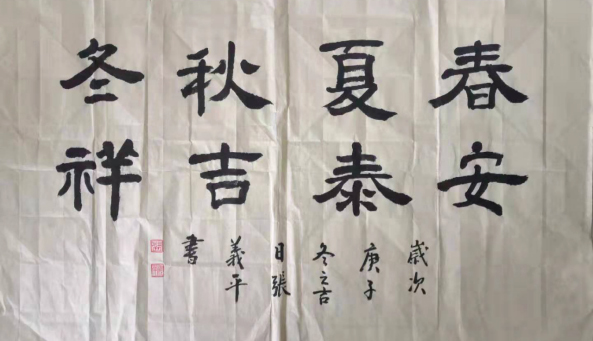 春安
夏泰
秋吉
冬祥
歲次
庚子
冬之吉
日張
義平
書